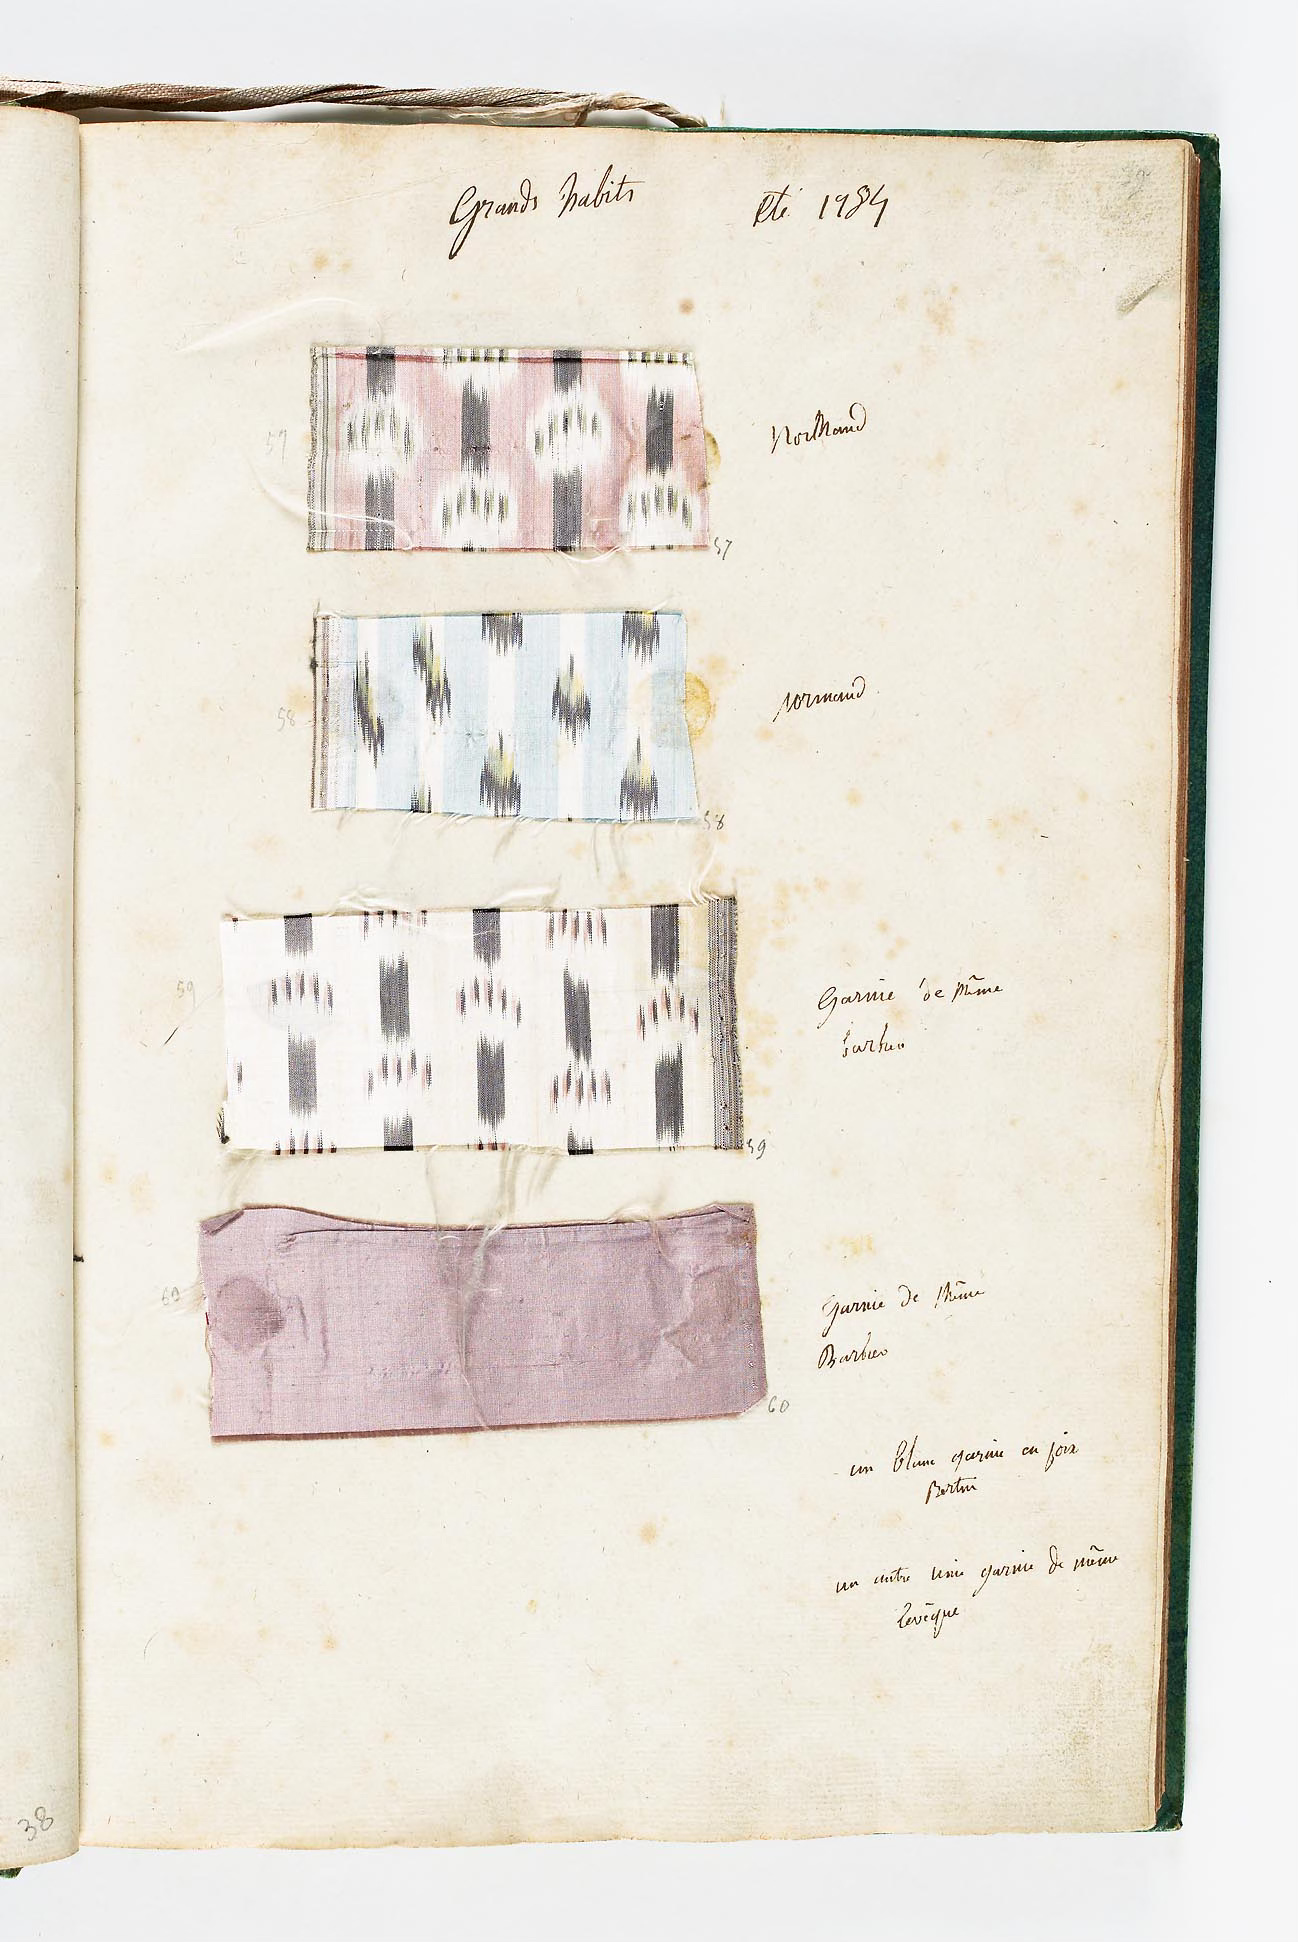 39
Grands habits Eté 1784
57 Normand
57
58 normand
58
59 Garnie de même
barbier
59
60 garnie de même
Barbier
60
un blanc garnie en
Bertin
un autre unie garnie de même
levêque
38